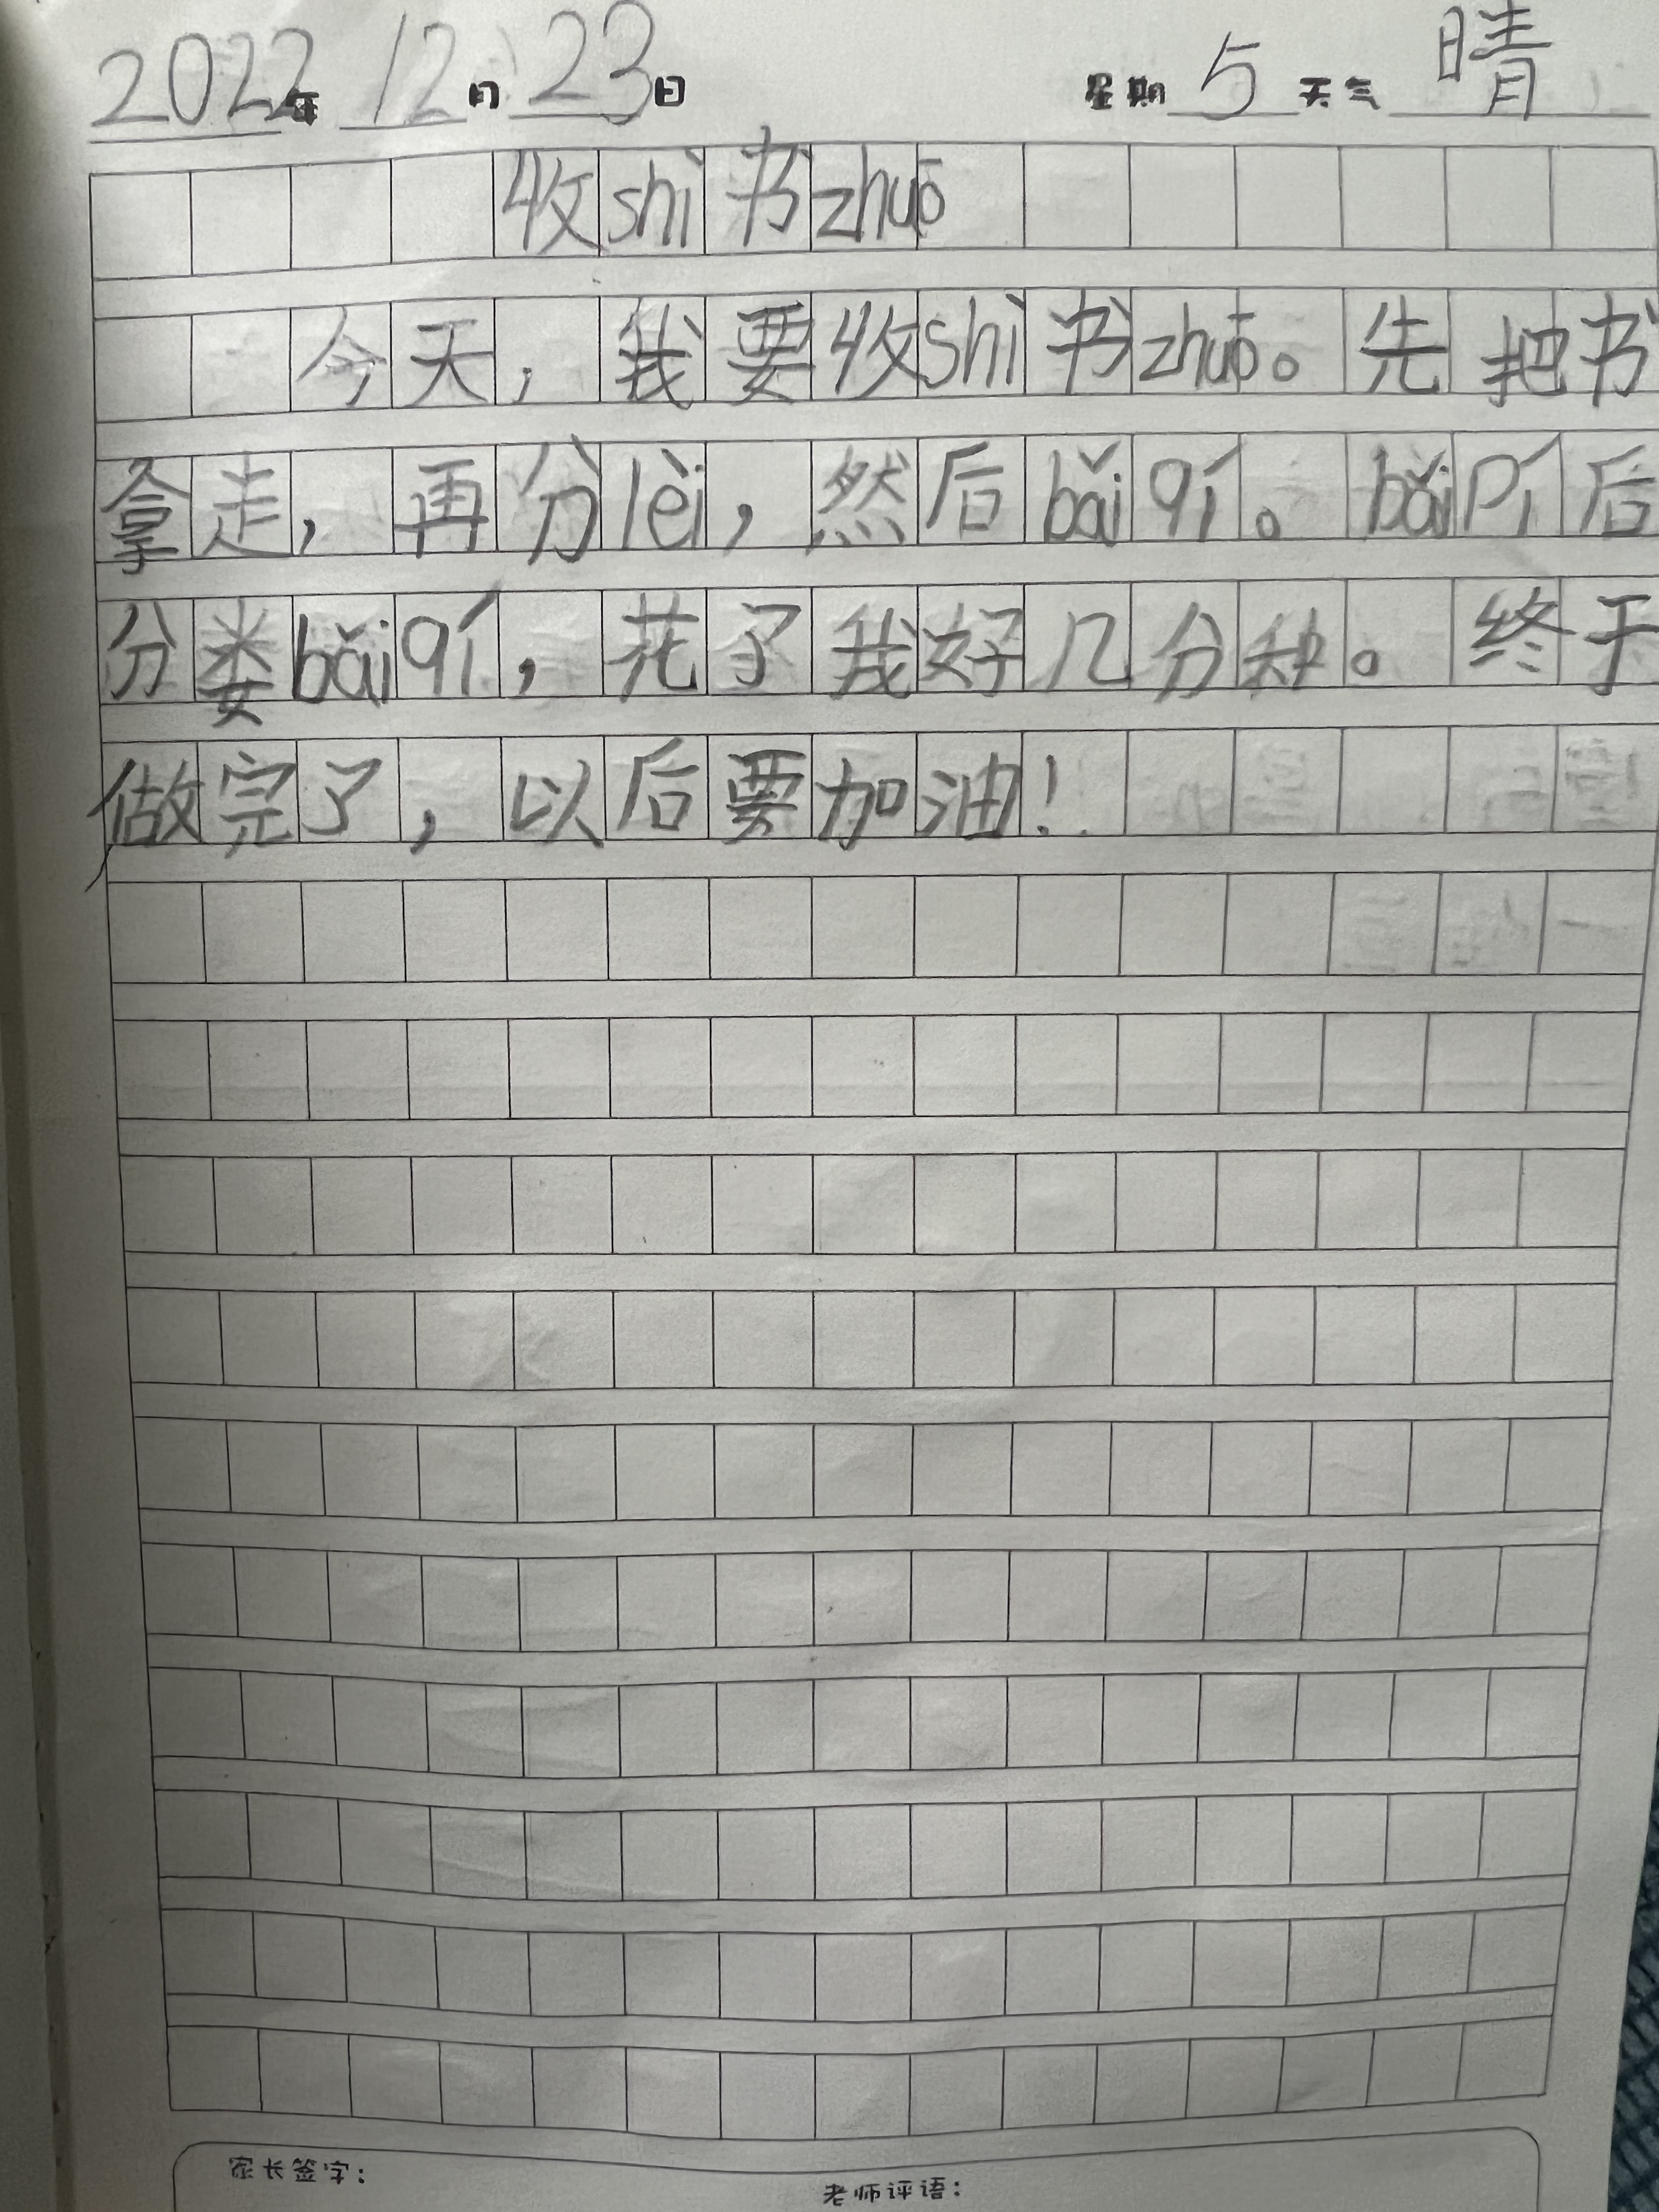 2022年 12月 23日 星期 5 天气 晴
收shì书zhuō
今天，我要收shì书zhuō。先把书
拿走，再分lèi，然后bǎiqí。bǎipí后
分娄bǎiqí，花了我好几分种。终于
做完了，以后要加油！
家长签字：
老师评语：